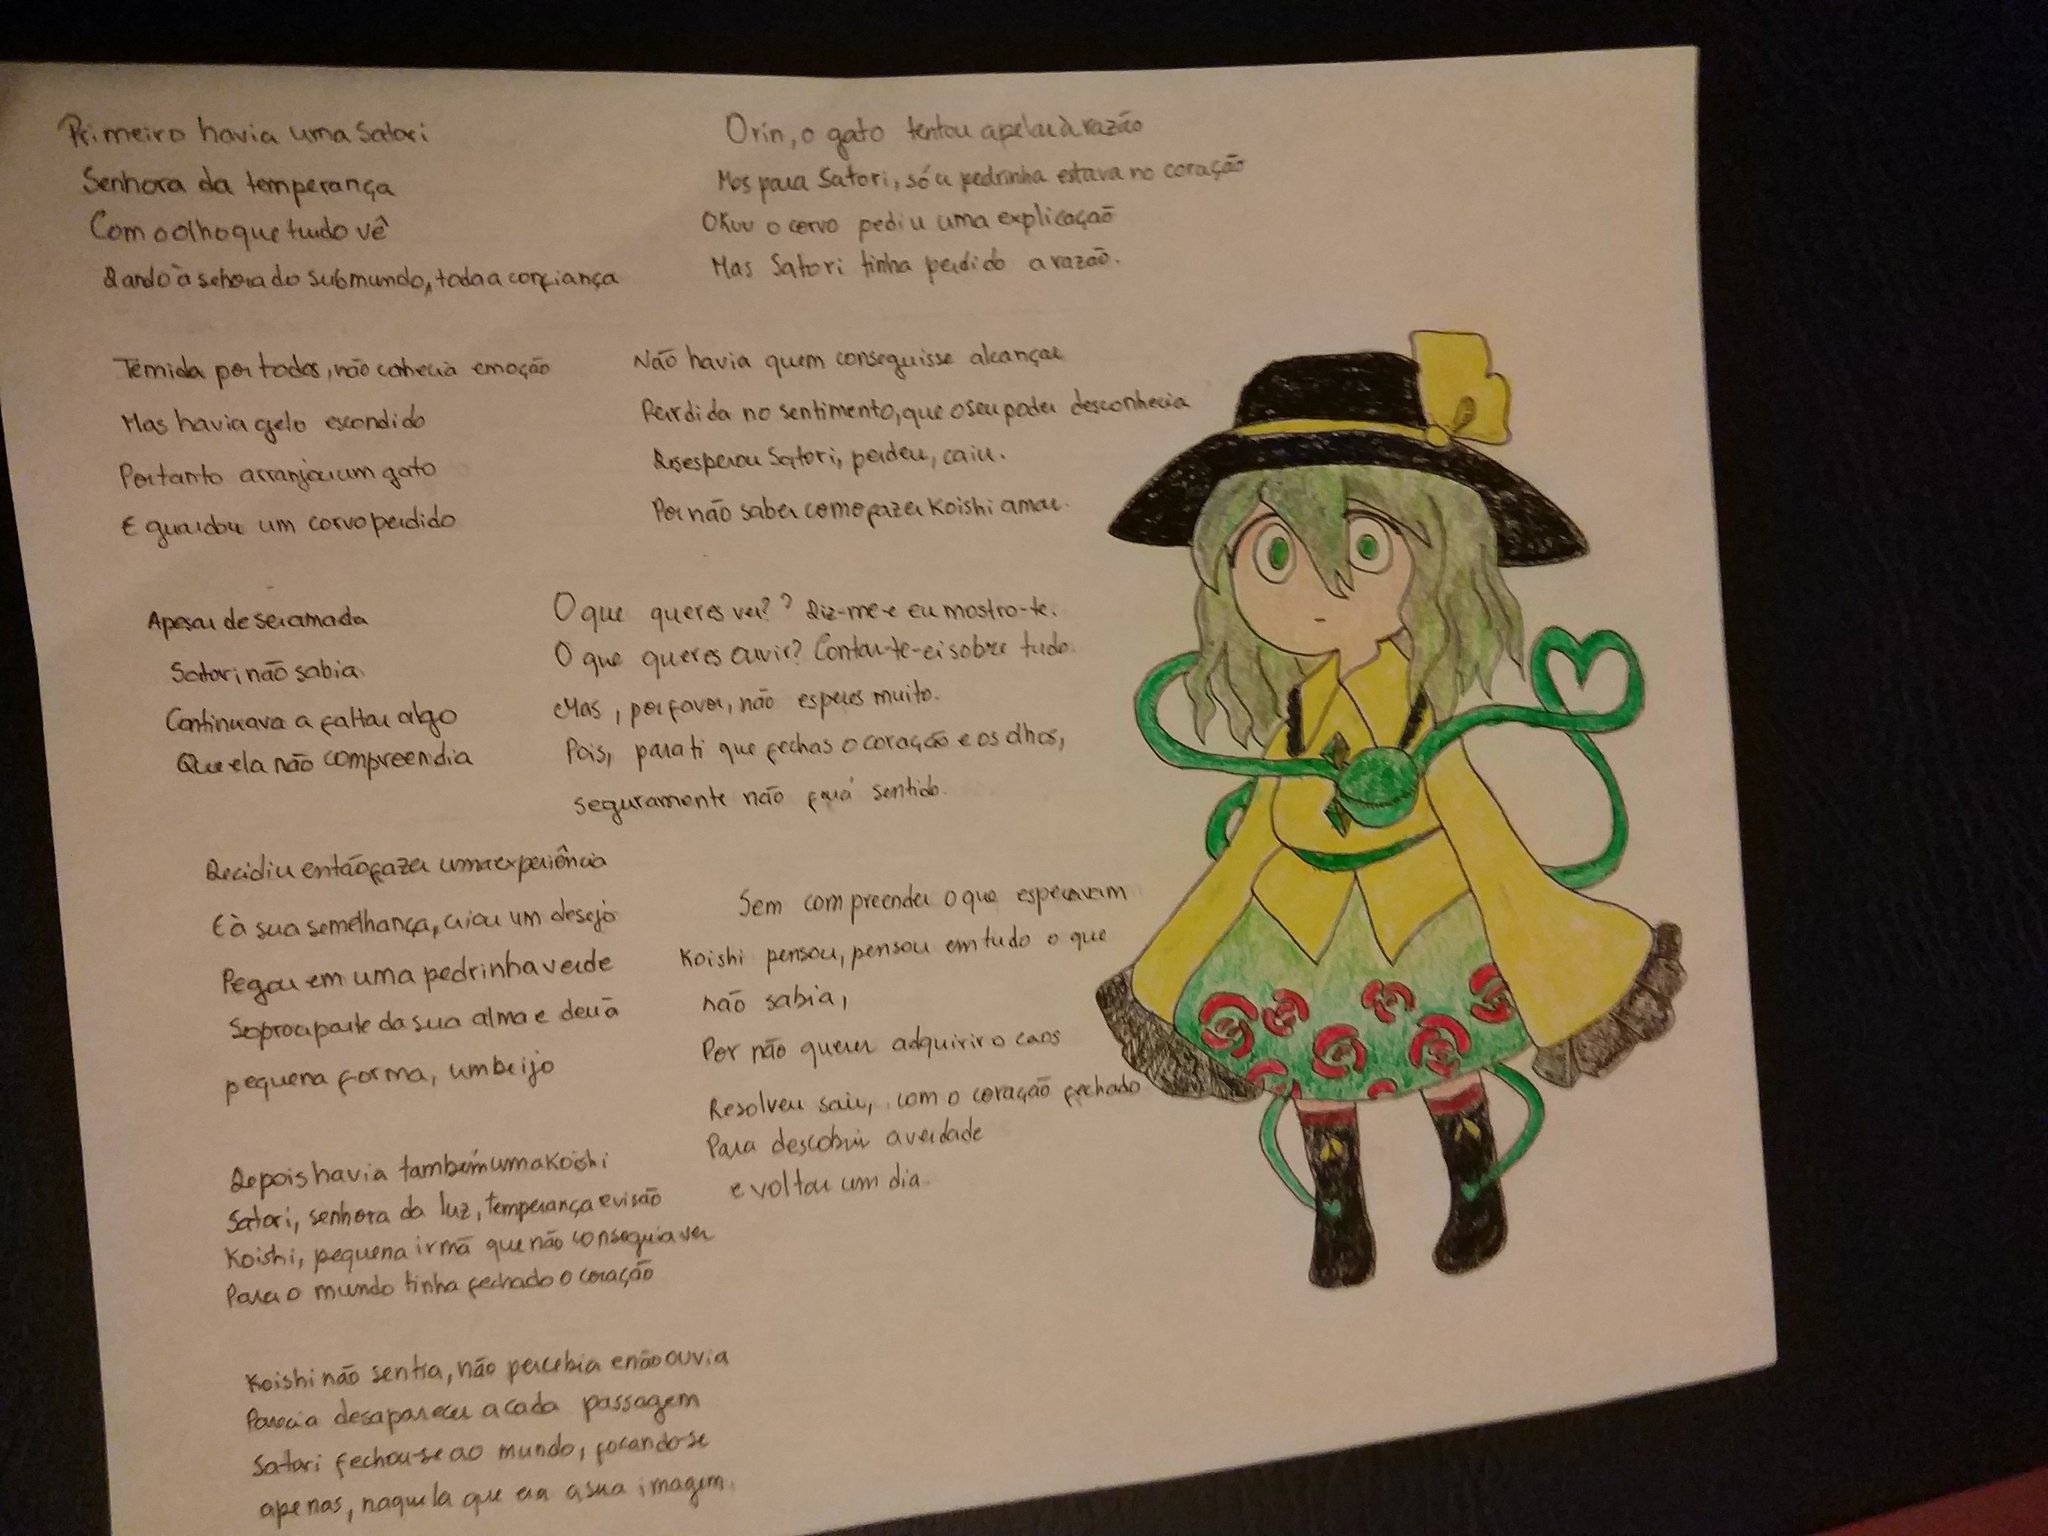 Primeiro havia uma Satori
Senhora da temperança
Com o olho que tudo vê
Dando à sehora do submundo, toda a confiança
Temida por todos, não conhecia emoção
Mas havia gelo escondido
Portanto arranjou um gato
E guardou um corvo perdido
Apesar de ser amada
Satori não sabia
Continuava a faltar algo
Que ela não compreendia
Decidiu então fazer uma experiência
E à sua semelhança, criou um desejo
Pegou em uma pedrinha verde
Soprou parte da sua alma e deu à
pequena forma, um beijo
Depois havia também uma Koishi
Satori, senhora da luz, temperança e visão
Koishi, pequena irmã que não conseguia ver
Para o mundo tinha fechado o coração
Koishi não sentia, não percebia e não ouvia
Parecia desaparecer a cada passagem
Satori fechou-se ao mundo, focando-se
apenas, naquela que era a sua imagem.
Orin, o gato tentou apelar à razão
Mas para Satori, só a pedrinha estava no coração
Okuu o corvo pediu uma explicação
Mas Satori tinha perdido a razão.
Não havia quem conseguisse alcançar
Perdida no sentimento, que o seu poder desconhecia
Desesperou Satori, perdeu, caiu.
Por não saber como fazer Koishi amar.
O que queres ver? ? Diz-me e eu mostro-te.
O que queres ouvir? Contar-te-ei sobre tudo.
Mas, por favor, não esperes muito.
Pois, para ti que fechas o coração e os olhos,
seguramente não fará sentido.
Sem compreender o que esperavam
Koishi pensou, pensou em tudo o que
não sabia,
Por não querer adquirir o caos
Resolveu sair, com o coração fechado
Para descobrir a verdade
e voltar um dia.